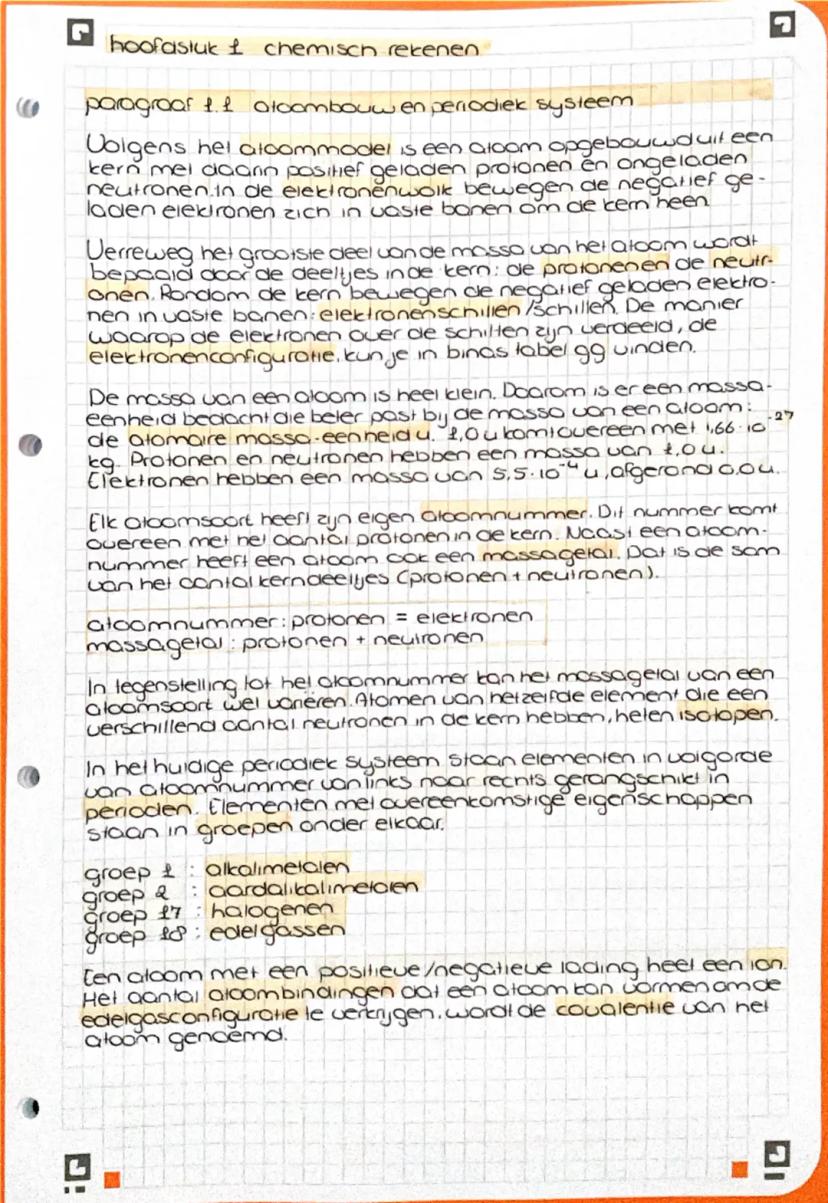 hoofdstuk 1 chemisch rekenen
paragraaf 1.1 atoombouw en periodiek systeem
Volgens het atoommodel is een atoom opgebouwd uit een
kern met daarin positief geladen protonen en ongeladen
neutronen. In de elektronenwolk bewegen de negatief ge-
laden elektronen zich in vaste banen om de kern heen.
Verreweg het grootste deel van de massa van het atoom wordt
bepaald door de deeltjes in de kern: de protonen en de neutr-
onen. Rondom de kern bewegen de negatief geladen elektro-
nen in vaste banen: elektronenschillen/schillen. De manier
waarop de elektronen over de schillen zijn verdeeld, de
elektronenconfiguratie, kun je in binas tabel 99 vinden.
De massa van een atoom is heel klein. Daarom is er een massa-
eenheid bedacht die beter past bij de massa van een atoom:
de atomaire massa-eenheid u. 1,0 u komt overeen met 1,66·10⁻²⁷
kg. Protonen en neutronen hebben een massa van 1,0 u.
Elektronen hebben een massa van 5,5·10⁻⁴ u, afgerond 0,0 u.
Elk atoomsoort heeft zijn eigen atoomnummer. Dit nummer komt
overeen met het aantal protonen in de kern. Naast een atoom-
nummer heeft een atoom ook een massagetal. Dat is de som
van het aantal kerndeeltjes (protonen + neutronen).
atoomnummer: protonen = elektronen
massagetal: protonen + neutronen
In tegenstelling tot het atoomnummer kan het massagetal van een
atoomsoort wel variëren. Atomen van hetzelfde element die een
verschillend aantal neutronen in de kern hebben, heten isotopen.
In het huidige periodiek systeem staan elementen in volgorde
van atoomnummer van links naar rechts gerangschikt in
perioden. Elementen met overeenkomstige eigenschappen
staan in groepen onder elkaar.
groep 1 : alkalimetalen
groep 2 : aardalkalimetalen
groep 17 : halogenen
groep 18 : edelgassen
Een atoom met een positieve/negatieve lading heet een ion.
Het aantal atoombindingen dat een atoom kan vormen om de
edelgasconfiguratie te verkrijgen, wordt de covalentie van het
atoom genoemd.